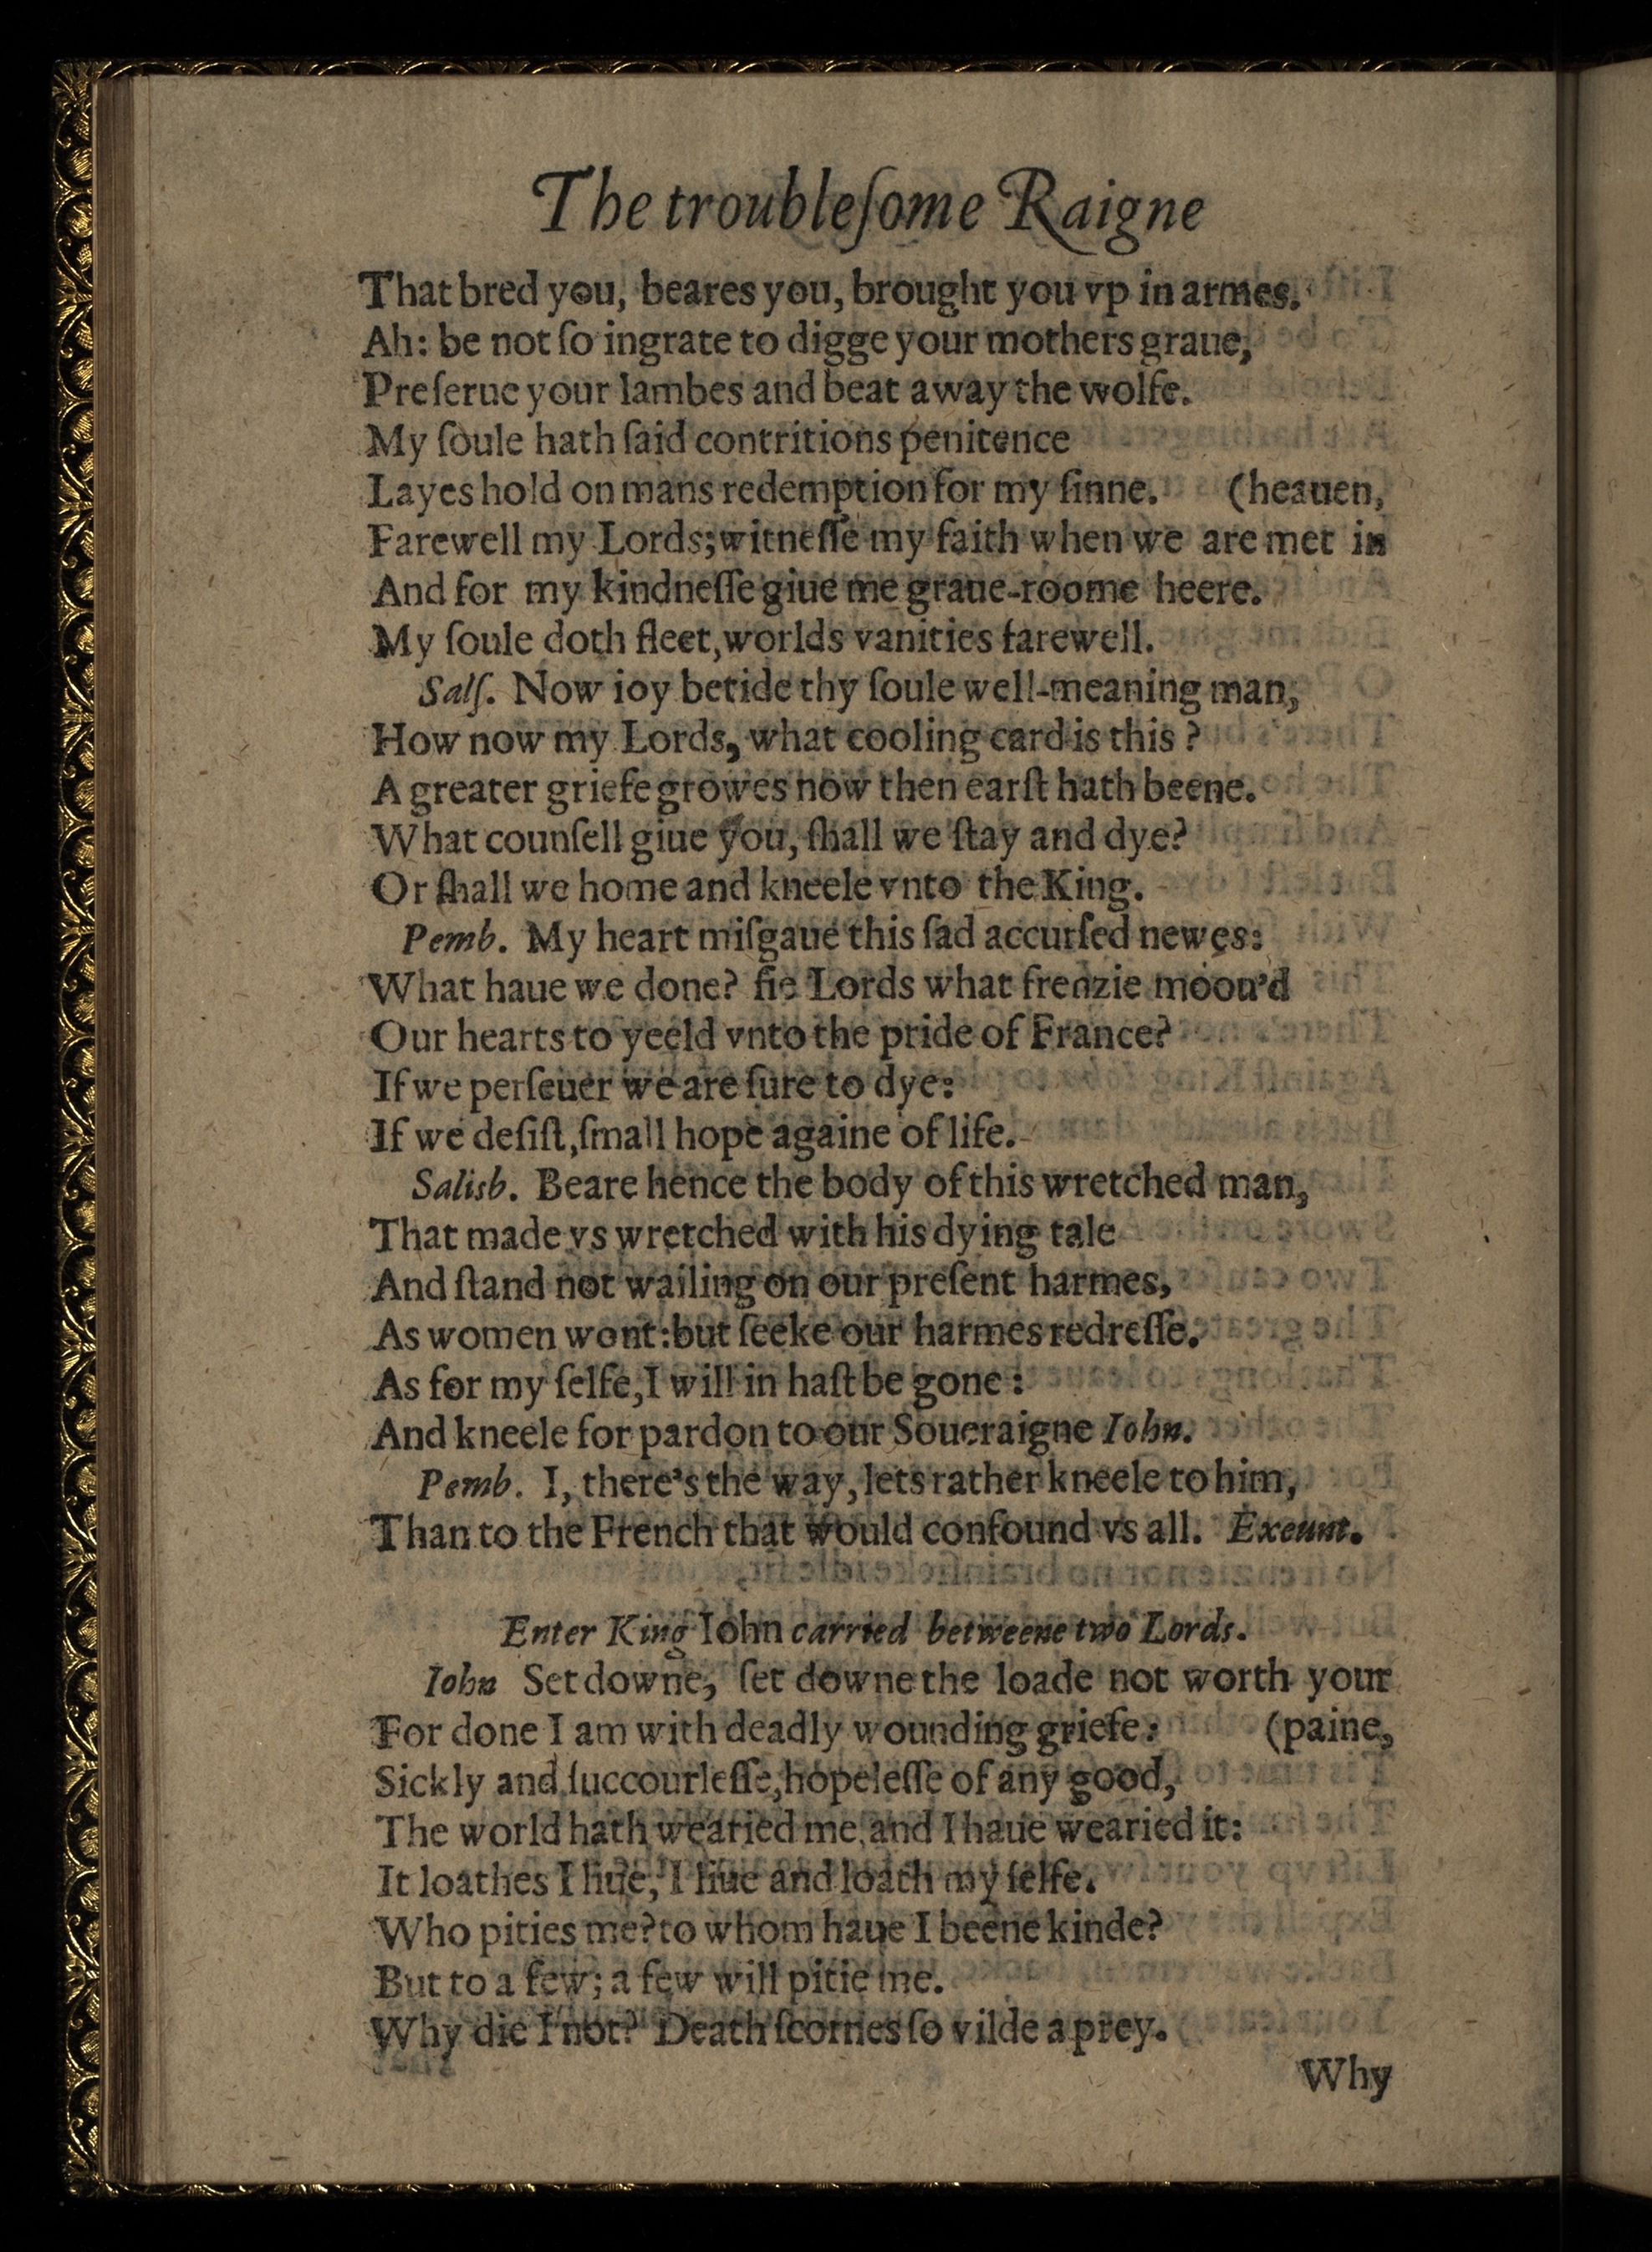 The troubleſome Raigne
That bred you, beares you, brought you vp in armes.
Ah: be not ſo ingrate to digge your mothers graue,
Preſerue your lambes and beat away the wolfe.
My ſoule hath ſaid contritions penitence
Layes hold on mans redemption for my ſinne. (heauen,
Farewell my Lords; witneſſe my faith when we are met in
And for my kindneſſe giue me graue-roome heere.
My ſoule doth fleet, worlds vanities farewell.
Salſ. Now ioy betide thy ſoule well-meaning man,
How now my Lords, what cooling card is this?
A greater griefe growes now then earſt hath beene.
What counſell giue you, ſhall we ſtay and dye?
Or ſhall we home and kneele vnto the King.
Pemb. My heart miſgaue this ſad accurſed newes:
What haue we done? fie Lords what frenzie moou'd
Our hearts to yeeld vnto the pride of France?
If we perſeuer we are ſure to dye:
If we deſiſt, ſmall hope againe of life.
Salisb. Beare hence the body of this wretched man,
That made vs wretched with his dying tale
And ſtand not wailing on our preſent harmes,
As women wont: but ſeeke our harmes redreſſe.
As for my ſelfe, I will in haſt be gone:
And kneele for pardon to our Soueraigne Iohn.
Pemb. I, there's the way, lets rather kneele to him,
Than to the French that would confound vs all. Exeunt.
Enter King Iohn carried betweene two Lords.
Iohn Set downe, ſet downe the loade not worth your
For done I am with deadly wounding griefe: (paine,
Sickly and ſuccourleſſe, hopeleſſe of any good,
The world hath wearied me, and I haue wearied it:
It loathes I liue, I liue and loath my ſelfe.
Who pities me? to whom haue I beene kinde?
But to a few; a few will pitie me.
Why die I not? Death ſcornes ſo vilde a prey.
Why